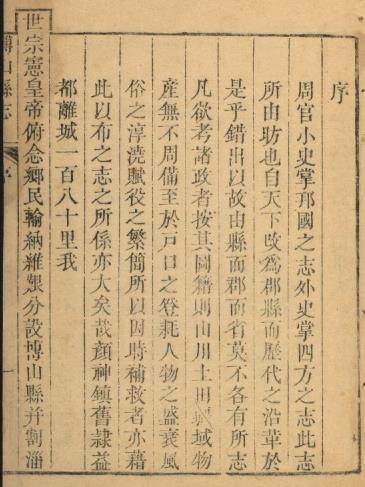 序
周官小史掌邦國之志外史掌四方之志此志
所由昉也自天下改為郡縣而歷代之沿革於
是乎錯出以故由縣而郡而省莫不各有所志
凡欲考諸政者按其圖籍則山川土田輿域物
產無不周備至於戶口之登耗人物之盛衰風
俗之淳澆賦役之繁簡所以因時補救者亦藉
此以布之志之所係亦大矣哉顏神鎮舊隷益
都離城一百八十里我
世宗憲皇帝俯念鄉民輸納維艱分設博山縣并割淄
博山縣志
序